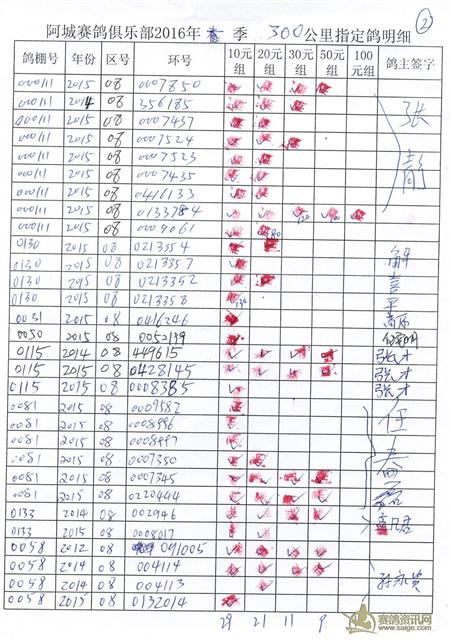 ②
阿城赛鸽俱乐部2016年春季 300公里指定鸽明细
鸽棚号 年份 区号 环号 10元组 20元组 30元组 50元组 100元组 鸽主签字
000111 2015 08 0007850
000111 2014 08 356185
000111 2015 08 0007437
000111 2015 08 0007524
000111 2015 08 0007523
000111 2015 08 0007522
000111 2015 08 0416133
000111 2015 08 0133784
000111 2015 08 0009061
张静
0130 2015 08 0213354
0130 2015 08 0213357
0130 2015 08 0213352
0130 2015 08 0213358
0031 2015 08 0416246
0050 2015 08 0052139
0115 2014 08 449615 张才
0115 2015 08 0428145 张才
0115 2015 08 0008385 张才
0081 2015 08 0009582
0081 2015 08 0008996
0081 2015 08 0008997
0081 2015 08 0007350
0081 2015 08 0007345
0081 2015 08 0220444
0133 2014 08 002946
0133 2015 08 0008017
0058 2012 08 091005
0058 2014 08 004114
0058 2014 08 004113
0058 2015 08 0132014
29 21 11 9
赛鸽资讯网
www.saige.com